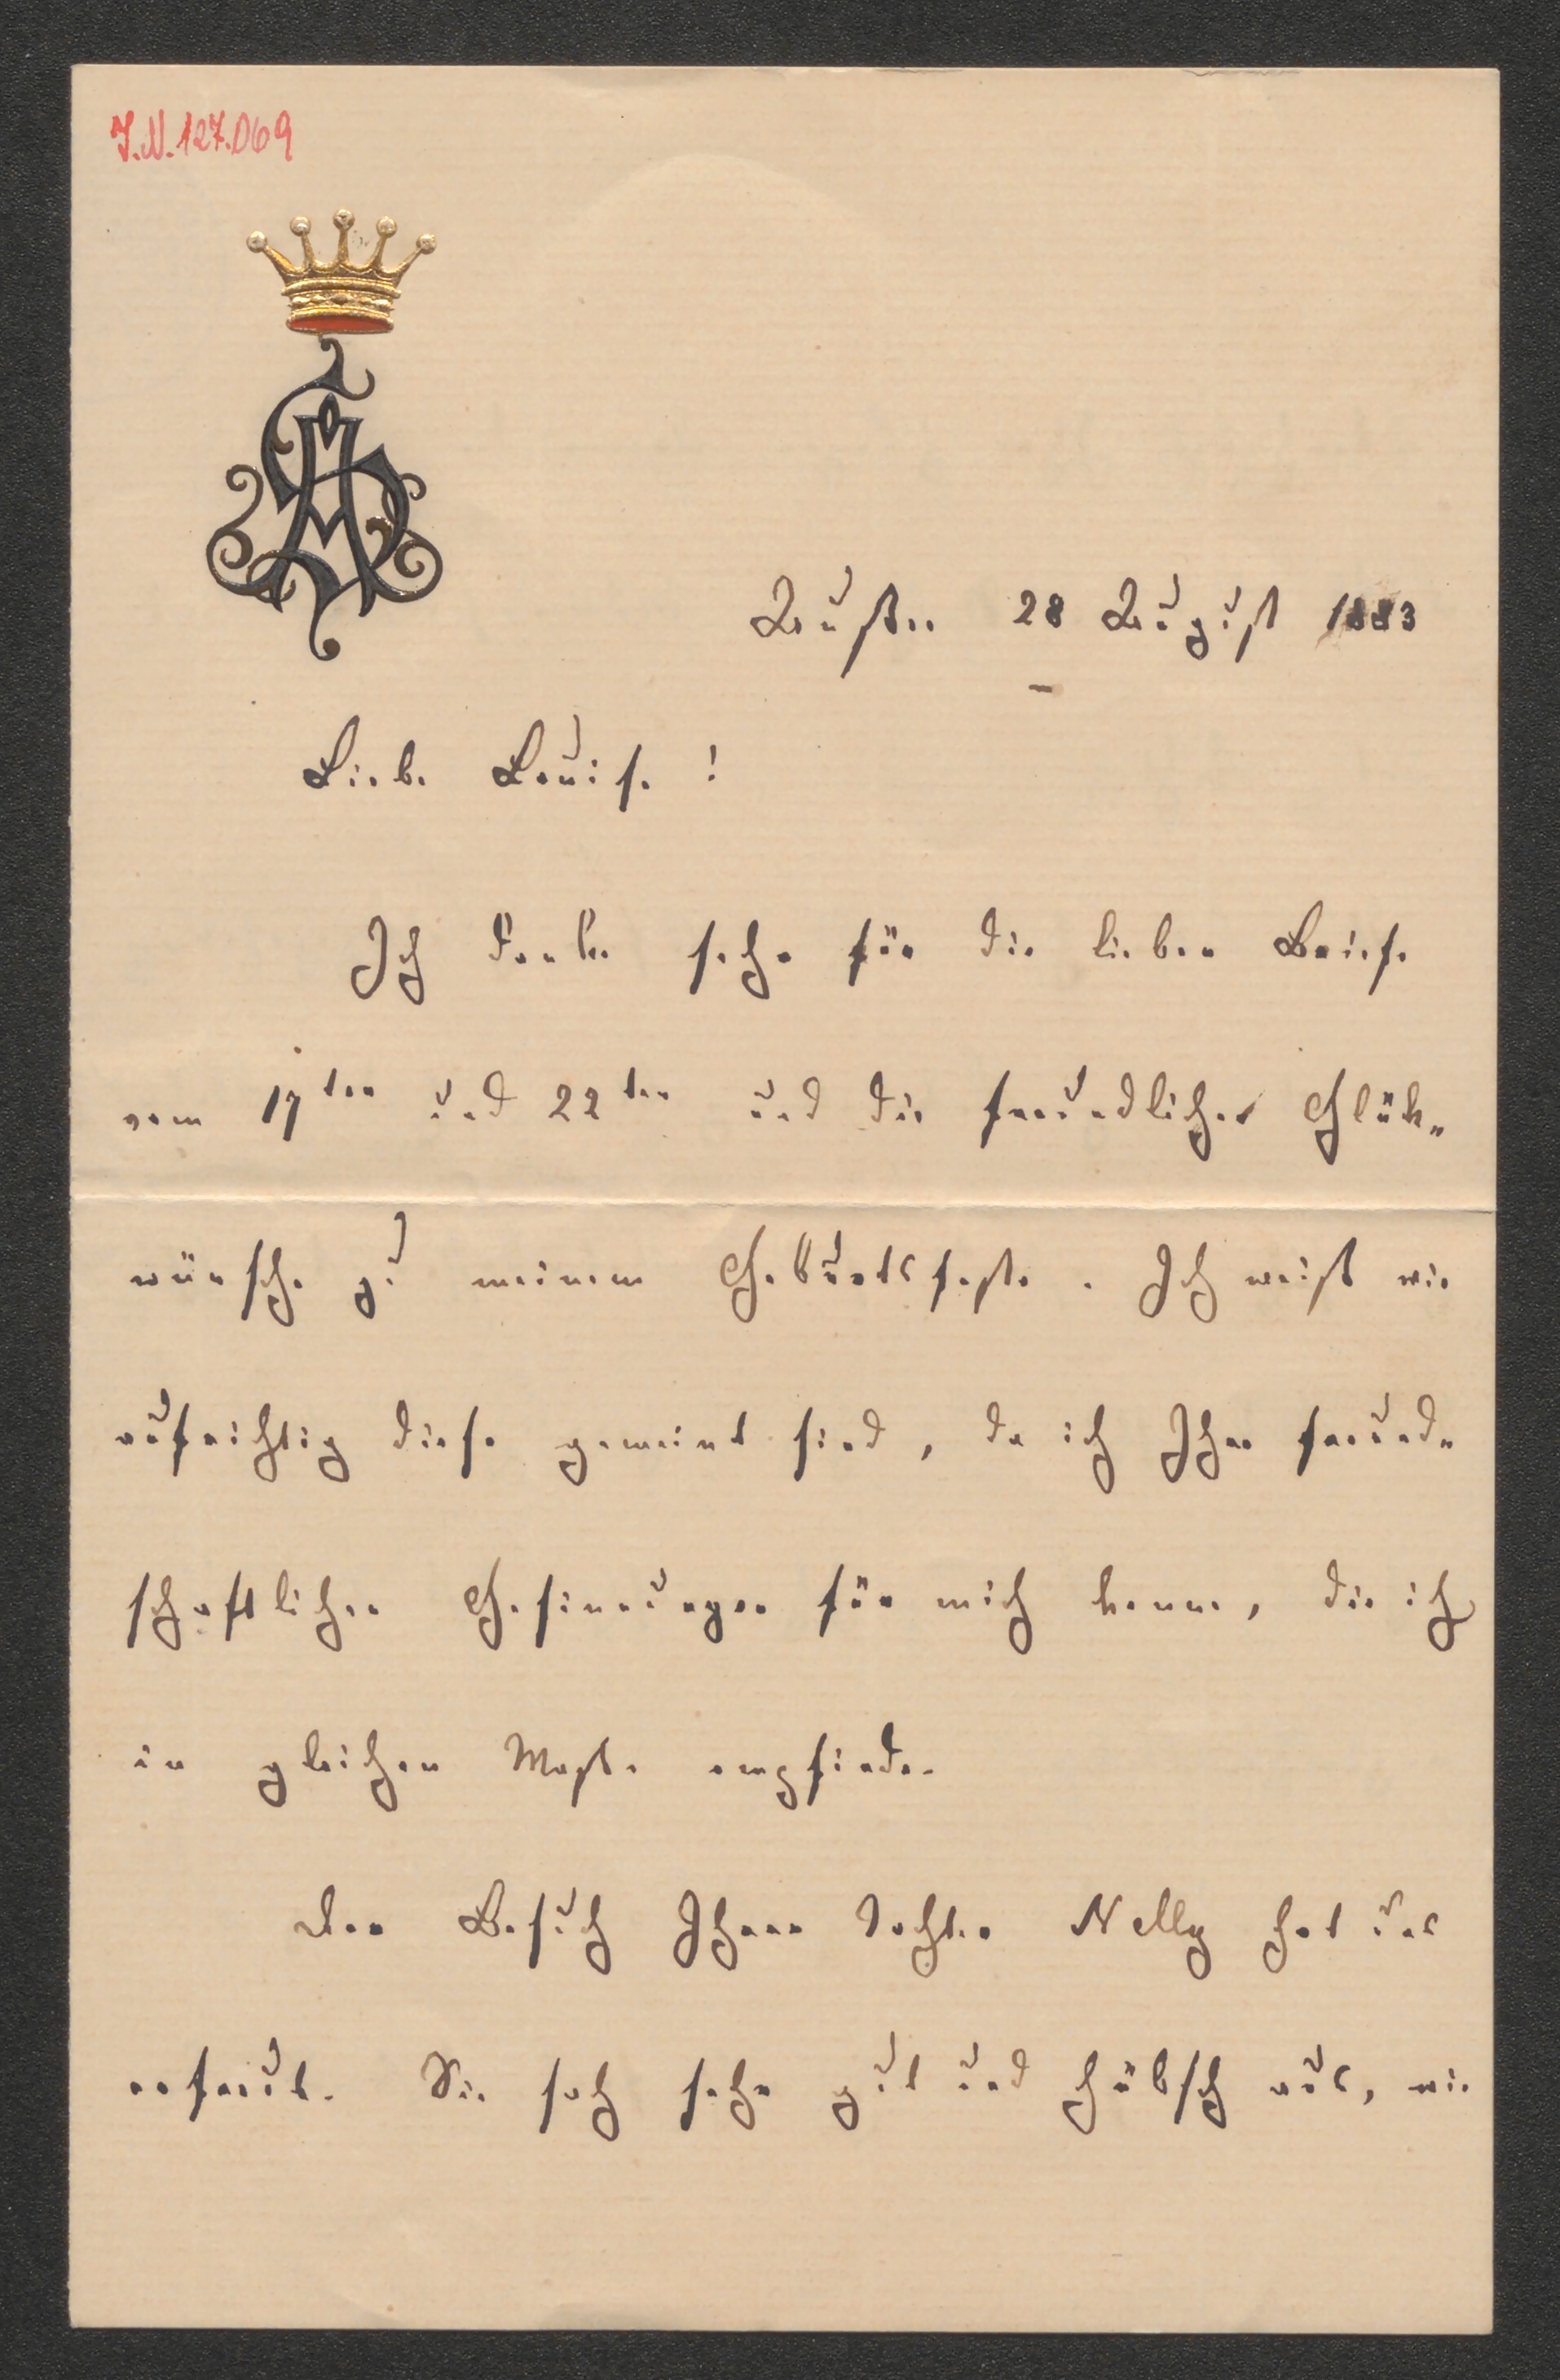 I.N. 127.069
Aussee 28 August 1883
Liebe Louise!
Ich danke sehr für die lieben Briefe
vom 17ten und 22ten und die freundlichen Glük„
wünsche zu meinem Geburtsfeste. Ich weiß wie
aufrichtig diese gemeint sind, da ich Ihre freund„
schaftlichen Gesinnungen für mich kenne, die ich
in gleichen Maße empfinde.
Der Besuch Ihrer Tochter Nelly hat uns
erfreut. Sie sah sehr gut und hübsch aus, wie